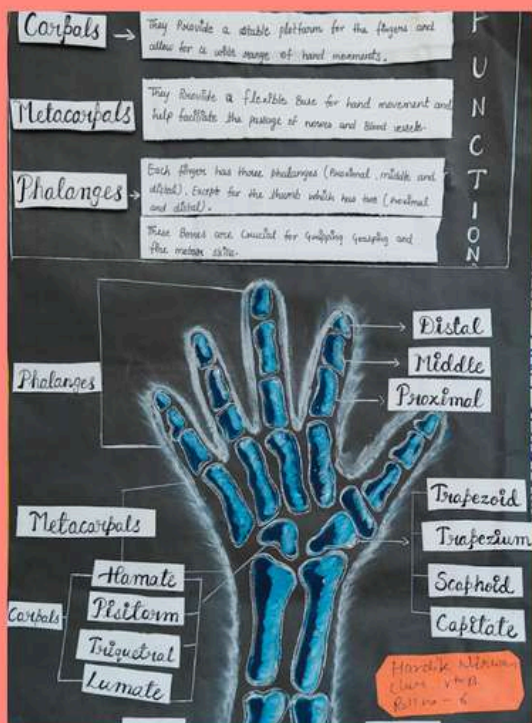 Carpals
They Provide a stable platform for the fingers and
allow for a wide range of hand movements.
Metacarpals
They Provide a flexible Base for hand movement and
help facilitate the passage of nerves and Blood vessels.
Phalanges
Each finger has three phalanges (Proximal, middle and
distal). Except for the thumb which has two (Proximal
and distal).
These Bones are Crucial for Gripping Grasping and
fine motor skills.
FUNCTION
Distal
Middle
Proximal
Phalanges
Trapezoid
Trapezium
Scaphoid
Capitate
Metacarpals
Hamate
Carpals
Pisiform
Triquetral
Lumate
Hardik
Class
Roll no - 6